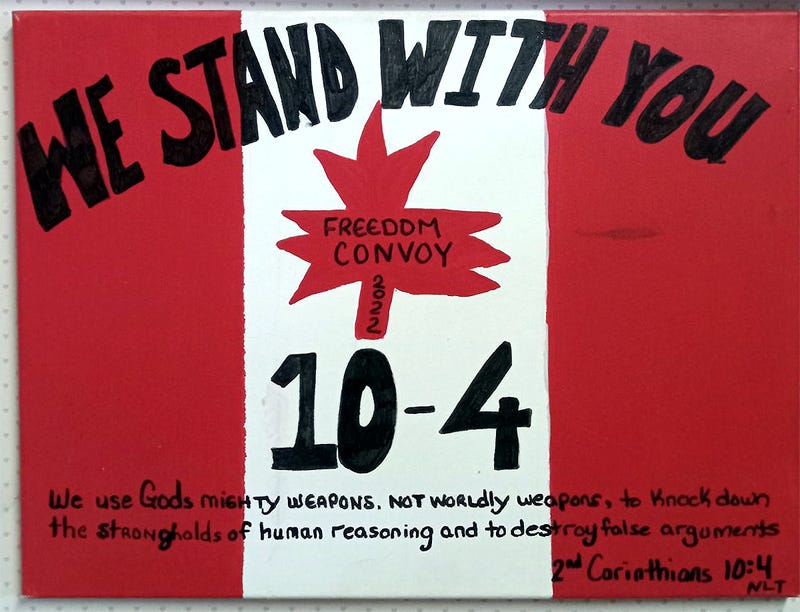 WE STAND WITH YOU
FREEDOM
CONVOY
2022
10-4
We use Gods mighty weapons, not worldly weapons, to knock down
the strongholds of human reasoning and to destroy false arguments
2nd Corinthians 10:4
NLT